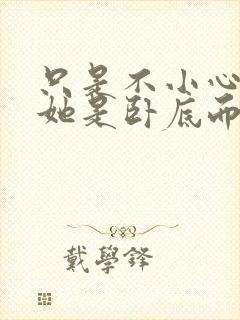 只是不小心
她是卧底而
戴學鋒